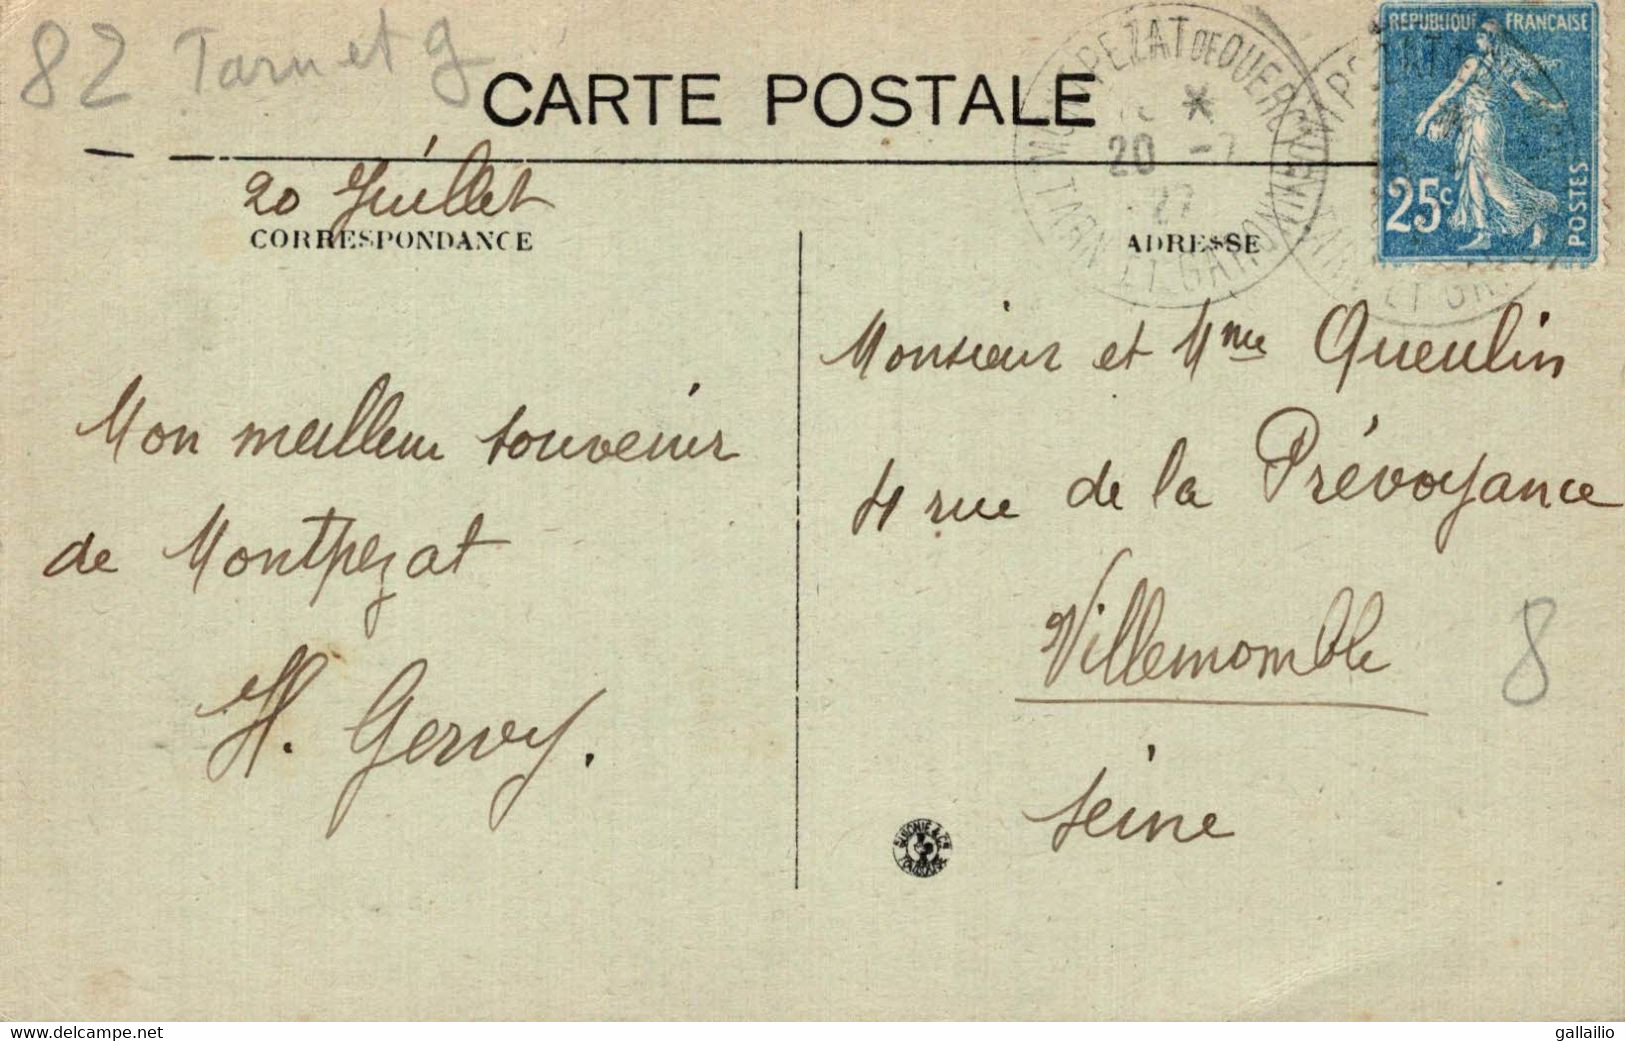 82 Tarn et g
CARTE POSTALE
20 Juillet
CORRESPONDANCE
Mon meilleur souvenir
de Montpezat
H. Gervoy.
PEZAT DE QUERCY
20 - 7
27
TARN ET GARONNE
RÉPUBLIQUE FRANÇAISE
25c
POSTES
ADRESSE
Monsieur et Mme Queulin
4 rue de la Prévoyance
Villemomble
8
Seine
& Cie
TOULOUSE
delcampe.net
gallailio